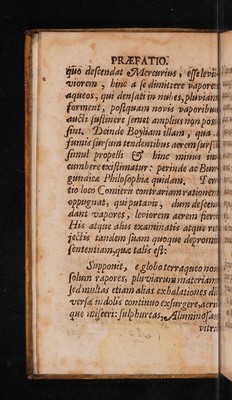 PRÆFATIO.
quo descendat Mercurius, esse levi
viorem, hinc a se dimittere vapores
aqueos, qui densati in nubes, pluviam
forment, postquam novis vaporibus
aucti sustinere semet amplius non pos
sint. Deinde Boylianam illam, qua
jumis sursum tendentibus aerem sursu
simul propelli & hinc minus in
cumbere existimatur: perinde ac Bur
gundicæ Philosophiæ quidam. Ter
tio loco Conierii contrariam rationem
oppugnat, qui putavit, dum descen
dant vapores, leviorem aerem fieri
His atque aliis examinatis atque re
jectis tandem suam quoque depromi
sententiam, quæ talis est:
Supponit, e globo terraqueo non
solum vapores, pluviarum materiam
sed multas etiam alias exhalationes di
versæ indolis continuo exsurgere, aeri
que misceri: sulphureas, Aluminosas
vitri